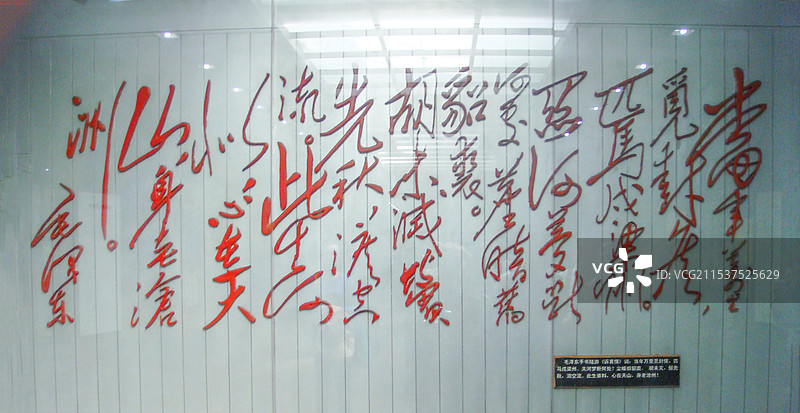 当年万里
觅封侯,
匹马戍梁州。
关河梦断
何处尘暗旧
貂裘。
胡未灭鬓
先秋,泪空
流。此生谁
料心在天
山,身老沧
洲。
毛泽东
毛泽东手书陆游《诉衷情》词:当年万里觅封侯,匹
马戍梁州,关河梦断何处?尘暗旧貂裘。胡未灭,鬓先
秋,泪空流。此生谁料,心在天山,身老沧洲!
VCG
VCG.COM
ID:VCG211537525629